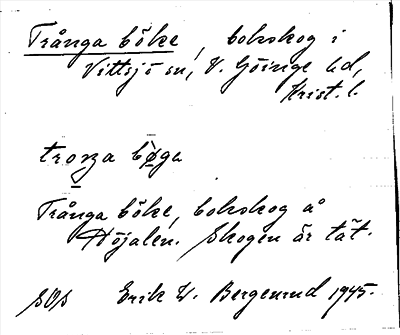 Trånga böke, bokskog i
Vittsjö sn, V. Göinge hd,
Krist. l.
troŋa bøga
Trånga böke, bokskog å
Höjalen. Skogen är tät.
SOS Erik W. Bergenrud 1945.